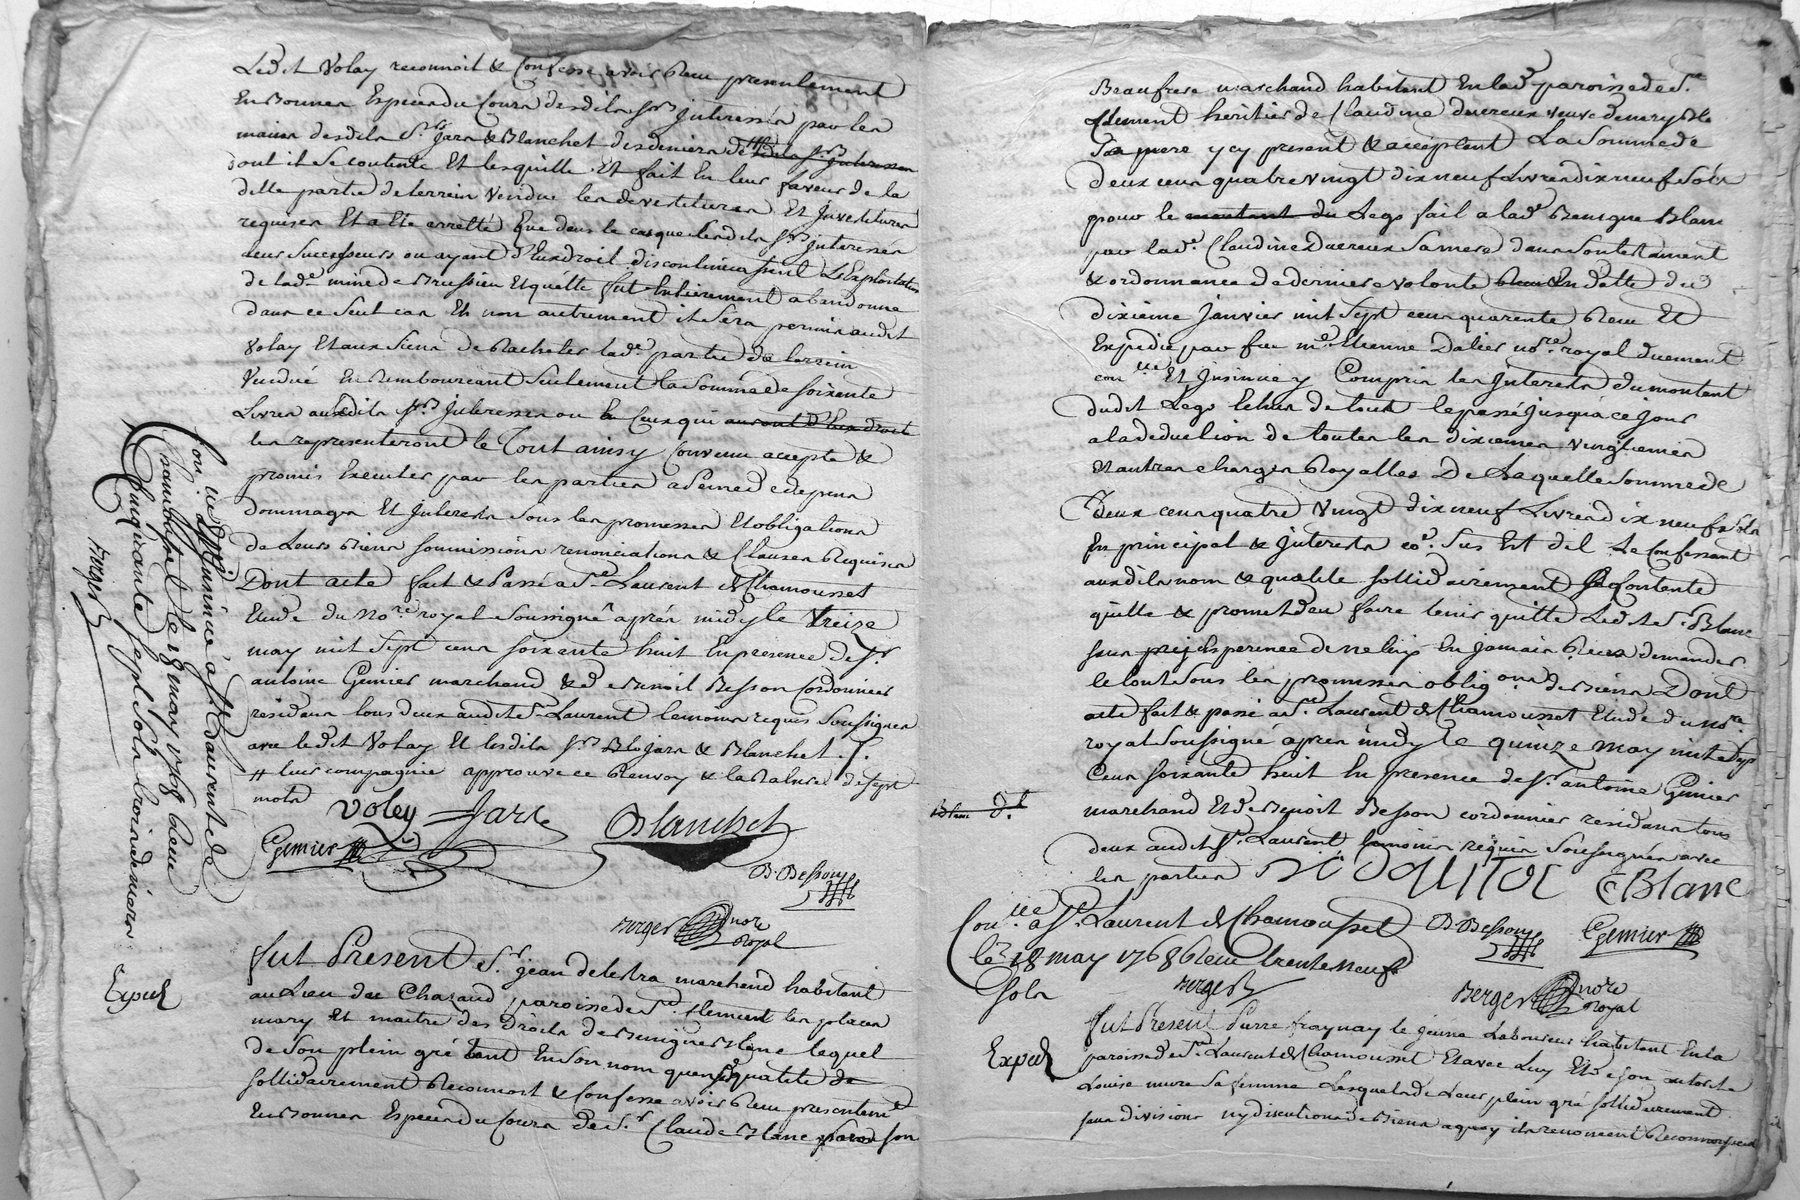 Ledit Volay reconnoit & Confesse avoir Reçu presentement
En Bonnes Especes du Cours desdits Srs Interessés par les
mains desdits Srs Jars & Blanchet des deniers de # desdits Srs Interessés
dont il se contente Et les quitte Et fait En leur faveur de la
ditte partie de terrein Vendue les devestitures Et Investitures
requises Et a Eté arretté Que dans le cas que lesdits Srs interessés
leurs Successeurs ou ayant d'Eux droit discontinuassent L'Exploitation
de lade mine de Brussieu Et qu'elle fut Entierement abandonne
dans ce seul cas Et non autrement il sera permis audit
Volay Et aux siens de Racheter lade partie de terrein
Vendue En Rembourcant seulement la somme de soixante
Livres auxdits Srs Interessés ou a Ceux qui auront d'Eux droit
les representeront le Tout ainsy Convenu accepte &
promis Executer par les parties a Peine de depens
dommages Et Interests sous les promesses Et obligations
de Leurs Biens soumissions renonciations & Clauses Requises
Dont acte fait & Passé a St Laurent de Chamousset
Etude du Nore royal soussigné après midy le treize
may mil sept cens soixante huit En presence de Sr
antoine Genier marchand & de Benoit Besson Cordonnier
residans tous deux audit St Laurent temoins requis soussignes
avec ledit Volay Et lesdits Srs Jars & Blanchet
# leur compagnie approuve ce Renvoy & la Rature de sept
mots
Voley Jars Blanchet
Genier B. Besson
Berger nore Royal
Con lle & Insinué à St Laurent de
Chamousset le 18 may 1768 Reçu
Cinquante sept sols trois deniers
Berger
Exped
Fut Present Sr jean delestra marchand habitant
au Lieu de Chazaud paroisse de St Clement les places
mary Et maitre des Droits de Benigne Blanc lequel
de son plein gré tant En son nom qu'en sde qualité de
sollidairement Reconnoit & Confesse avoir Reçu presentement
En Bonnes Especes du Cours de Sr Claude Blanc son
Beaufrere marchand habitant En lade paroisse de St
Clement héritier de Claudine duereux veuve
Sa mere y cy present & acceptant La Somme de
deux cens quatre vingt dix neuf Livres dix neuf sols
pour le montant du Legs fait a lade Benigne Blanc
par lade Claudine duereux sa mere dans son testament
& ordonnance de derniere volonté En datte du
dixieme janvier mil sept cens quarente Reçu Et
Expedie par feu me Etienne Dalier nore royal duement
con lle Et Insinue y Compris les Interests du montant
dudit Legs Echus de tout le passé jusqu'à ce jour
a la deduction de toutes les dixiemes vingtiemes
Et autres charges Royalles De Laquelle somme de
Deux cens quatre Vingt dix neuf Livres dix neuf sols
En principal & Interests co. sus Est dit Le Confessant
auxdits nom & qualité sollidairement se Contente
quitte & promet d'en faire tenir quitte Ledit Sr Blanc
Le tout sous les promesses obligons de Biens Dont
acte fait & passé a St Laurent de Chamousset Etude du nore
royal soussigné après midy le quinze may mil sept
Cens soixante huit En presence de Sr antoine Genier
marchand Et de Benoit Besson cordonnier residans tous
deux audit St Laurent temoins requis soussignés avec
les parties C Blanc
Con lle a St Laurent de Chamousset
le 18 may 1768 Reçu trente neuf
Sols
Berger
B. Besson Genier
Berger nore Royal
Exped
Fut Present Pierre fraynay le jeune Laboureur habitant En la
paroisse de St Laurent de Chamousset Et avec Luy Et de son autorité
Louise mure sa femme Lesquels de Leur plein gré sollidairement
sans division ny discution de Biens a quoy ils renoncent Reconnoissent